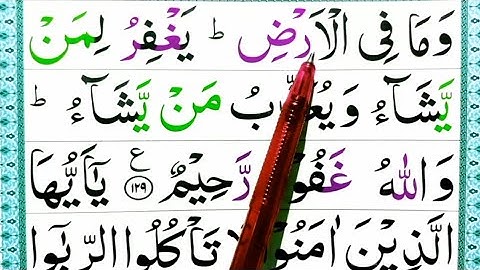 وَمَا فِى الْاَرْضِ ؕ يَغْفِرُ لِمَنْ
يَّشَآءُ وَيُعَذِّبُ مَنْ يَّشَآءُ ؕ
وَاللّٰهُ غَفُوْرٌ رَّحِيْمٌ ﴿۱۲۹﴾ ع يٰٓاَيُّهَا
الَّذِيْنَ اٰمَنُوْا لَا تَاْكُلُوا الرِّبٰٓوا